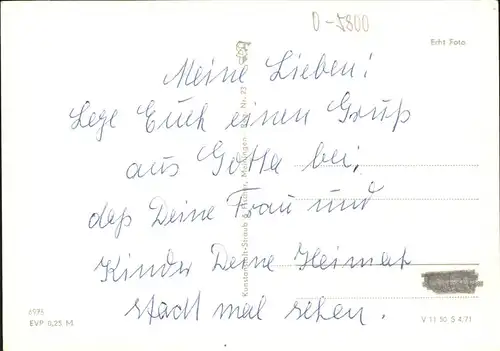 0-5800
Echt Foto
Meine Lieben!
Lege Euch einen Gruß
aus Gotha bei,
daß Deine Frau und
Kinder Deine Heimat
stadt mal sehen.
6976
EVP 0,25 M
V 11 50 S 4/71